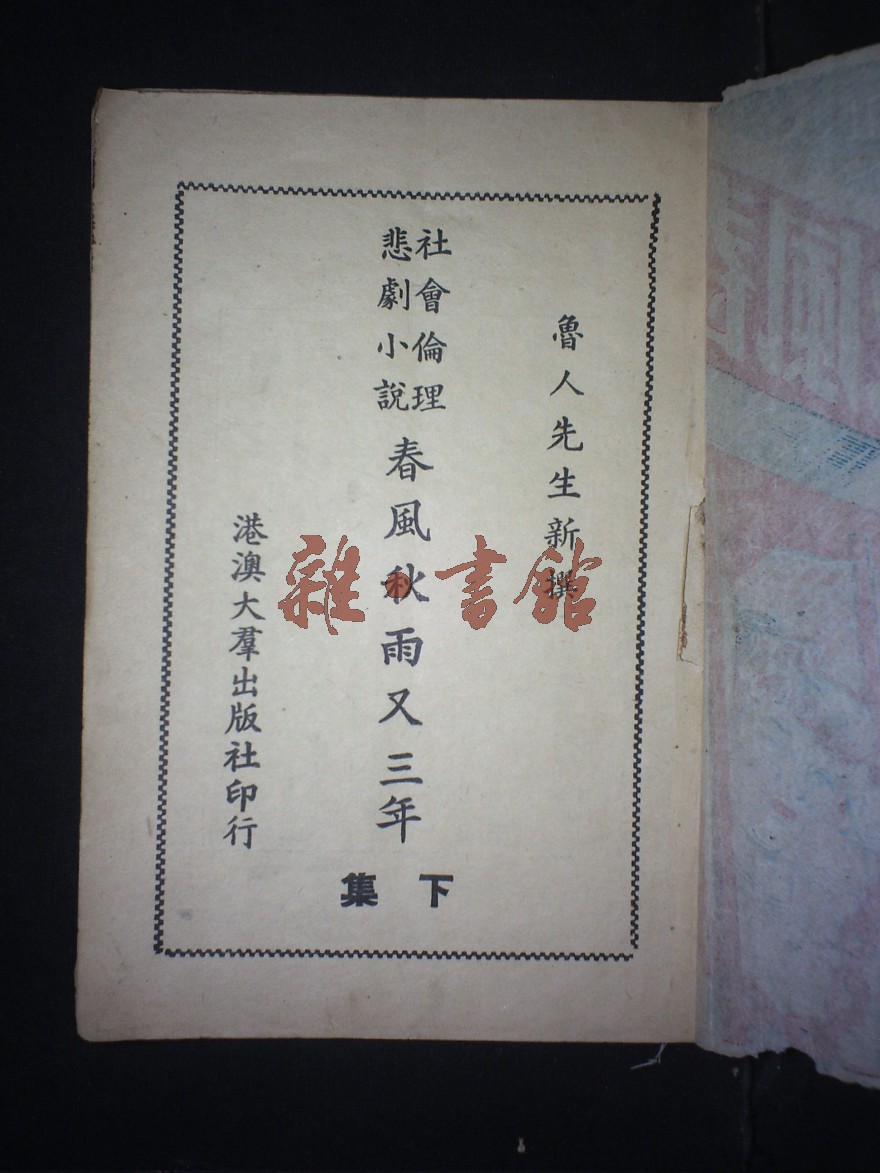 魯人先生新撰
社會倫理
悲劇小說
春風秋雨又三年
下集
港澳大羣出版社印行
雜書館